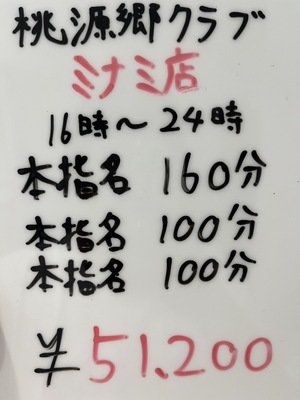 桃源郷クラブ
ミナミ店
16時～24時
本指名 160分
本指名 100分
本指名 100分
¥51.200